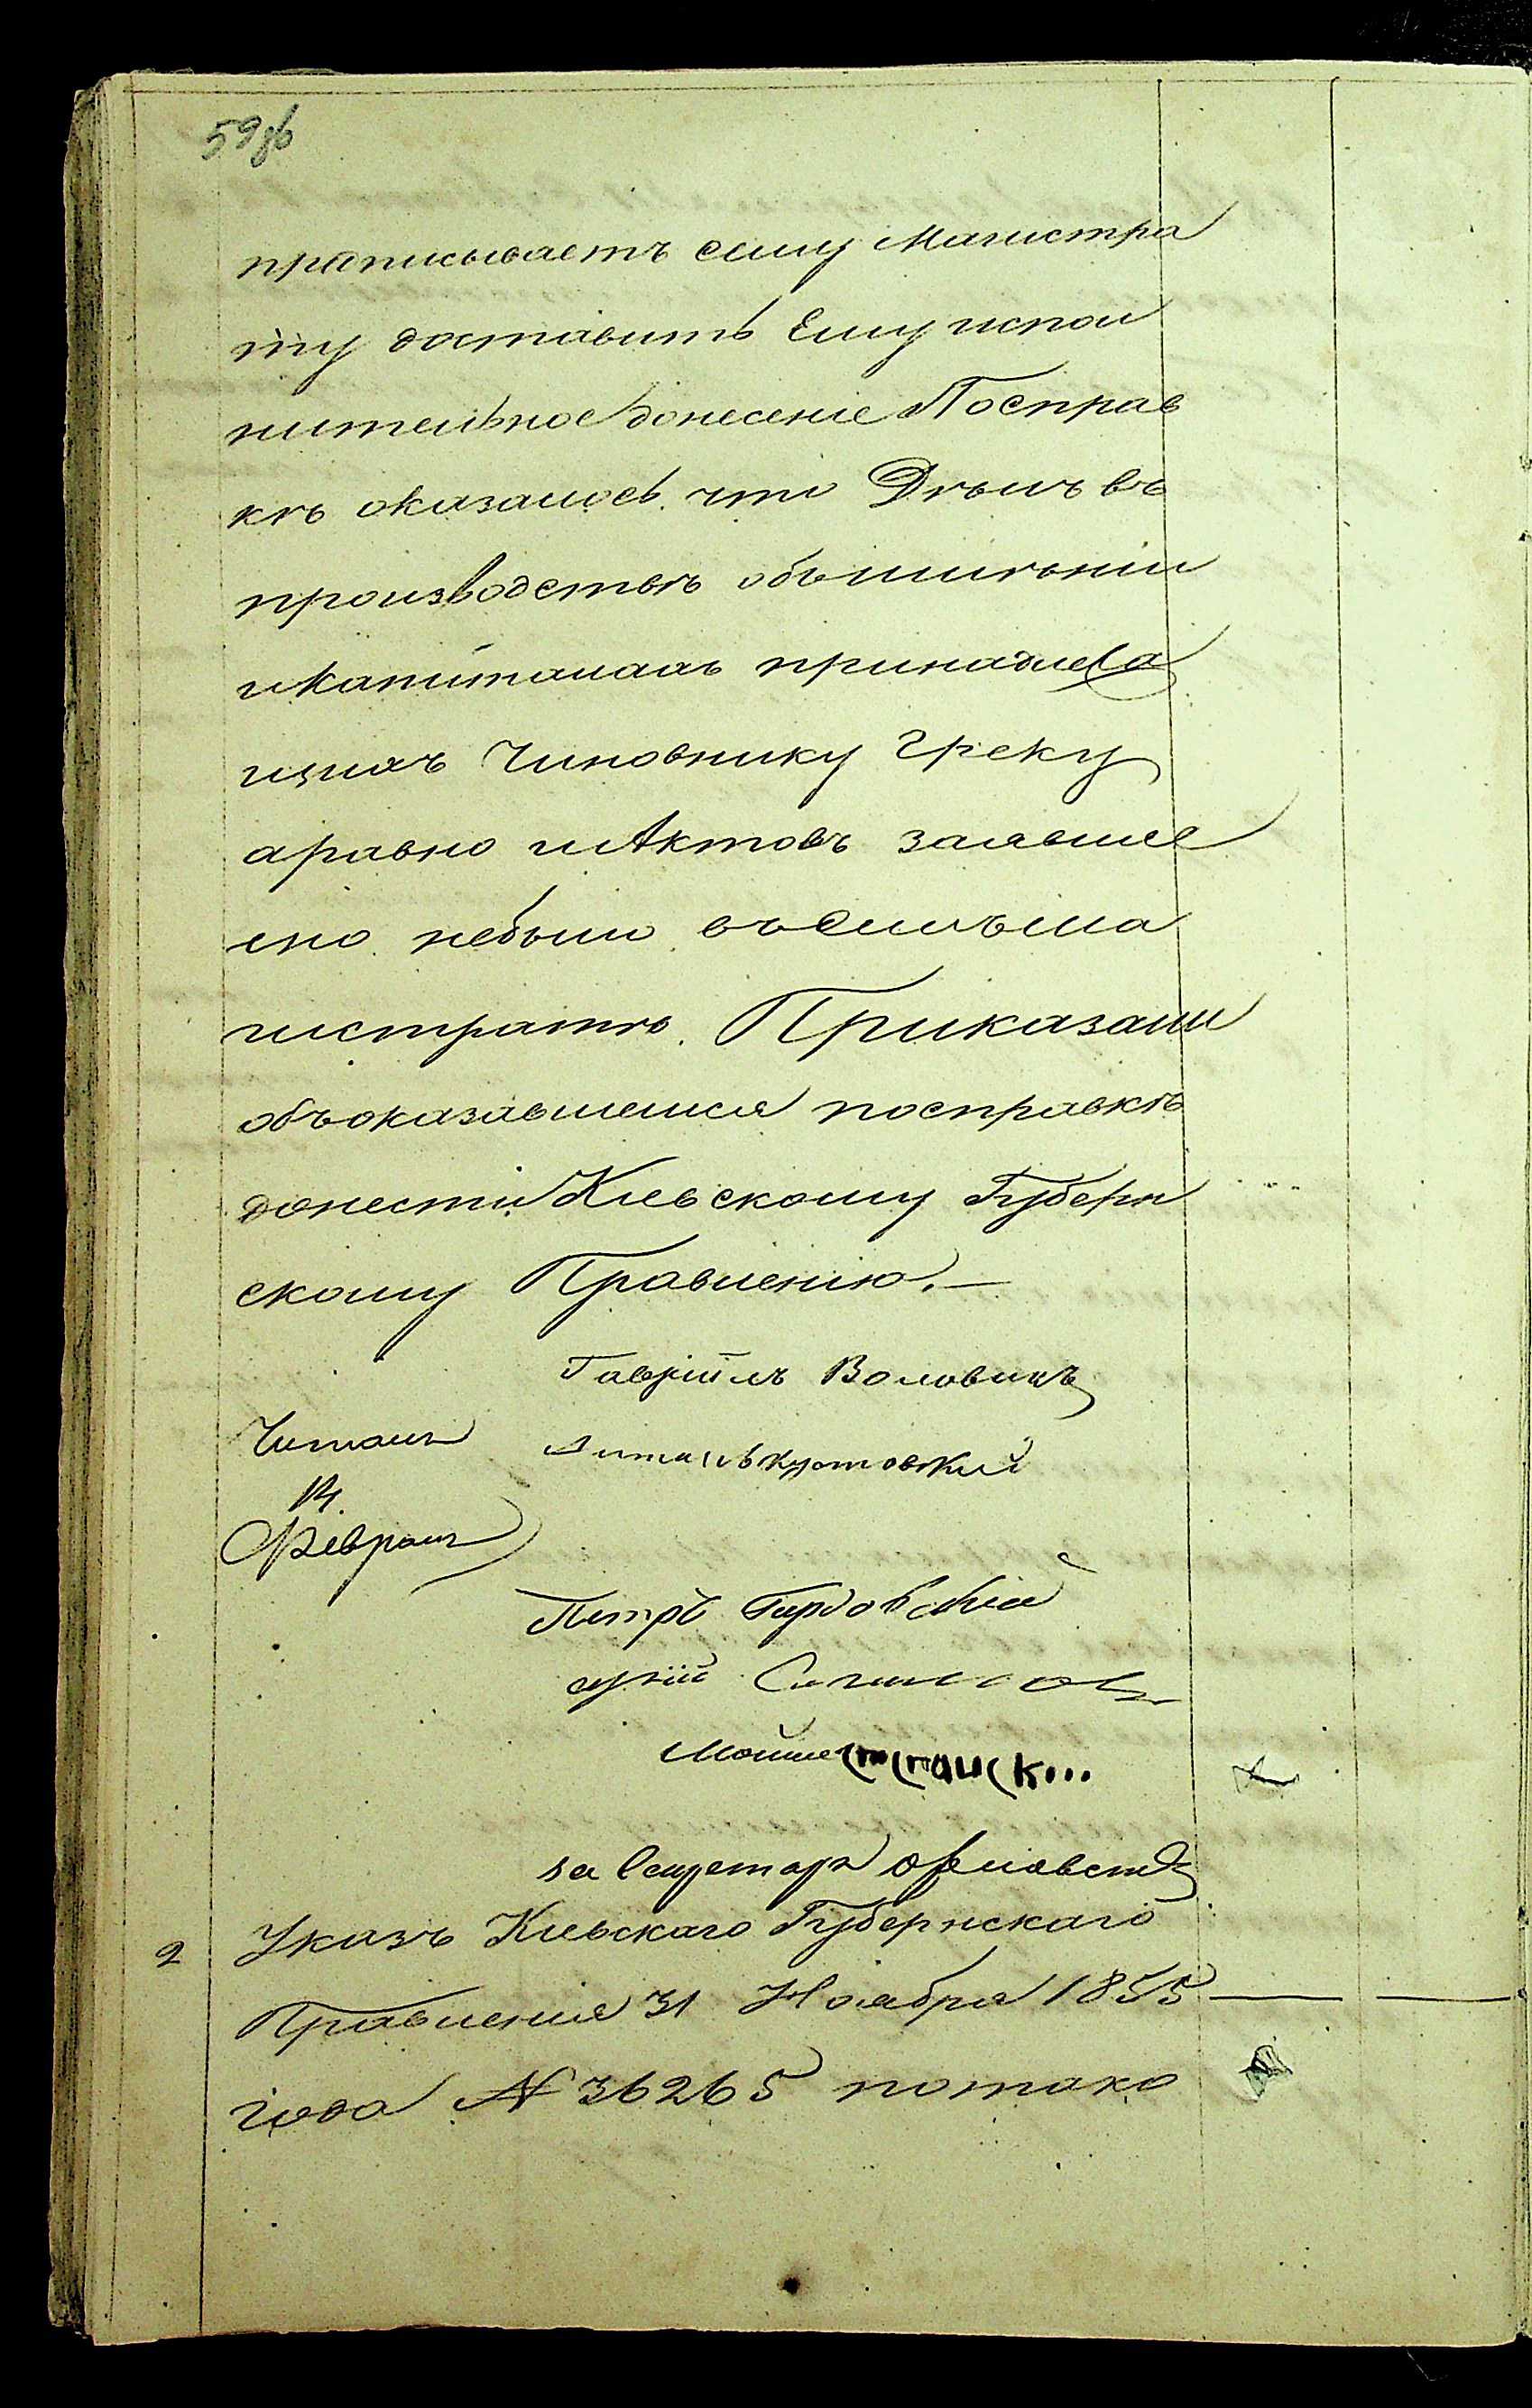 59об
прописываетъ сему Магистра
ту доставить Ему испол
нительное донесеніе Посправ
кѣ оказалось что Дѣлъ въ
производствѣ объимѣніи
икапиталахъ принадлежа
щихъ Чиновнику Греку
аравно иАктовъ заявлие
ено небыло въСемъМа
гистратѣ. Приказали
объоказавшемся посправкѣ
донести Кіевскому Губерн
скому Правленію.—
Гавріилъ Воловикъ
Читалъ
14
Февраля
Петръ Гардовскій
Мошие
за Секретаря
2 Указъ Кіевскаго Губернскаго
Правленія 31 Ноября 1855
года № 36265 потако